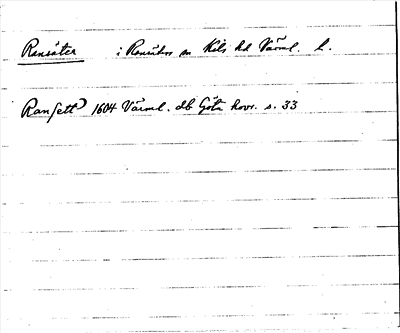 Ransäter i Ransäters sn Kils hd Värml. l.
Ransett 1604 Värml. db Göta hovr. s. 33